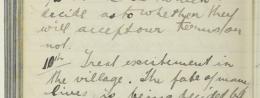 decide as to whether they
will accept our terms or
not.
10th. Great excitement in
the village. The fate of many
lives is being decided